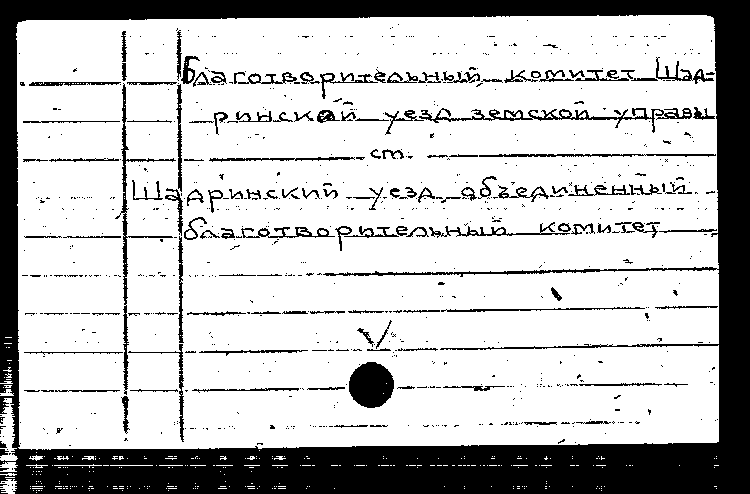 Благотворительный комитет Шад-
ринской уезд. земской управы
см.
Шадринский уезд. объединенный
благотворительный комитет